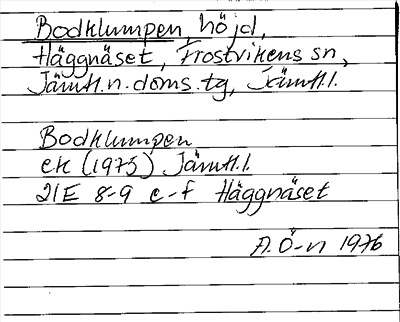 Bodklumpen, höjd,
Häggnäset, Frostvikens sn,
Jämtl.n.doms.tg, Jämtl.l.
Bodklumpen
ek (1975) Jämtl.l.
21E 8-9 e-f Häggnäset
A.Ö-n 1976